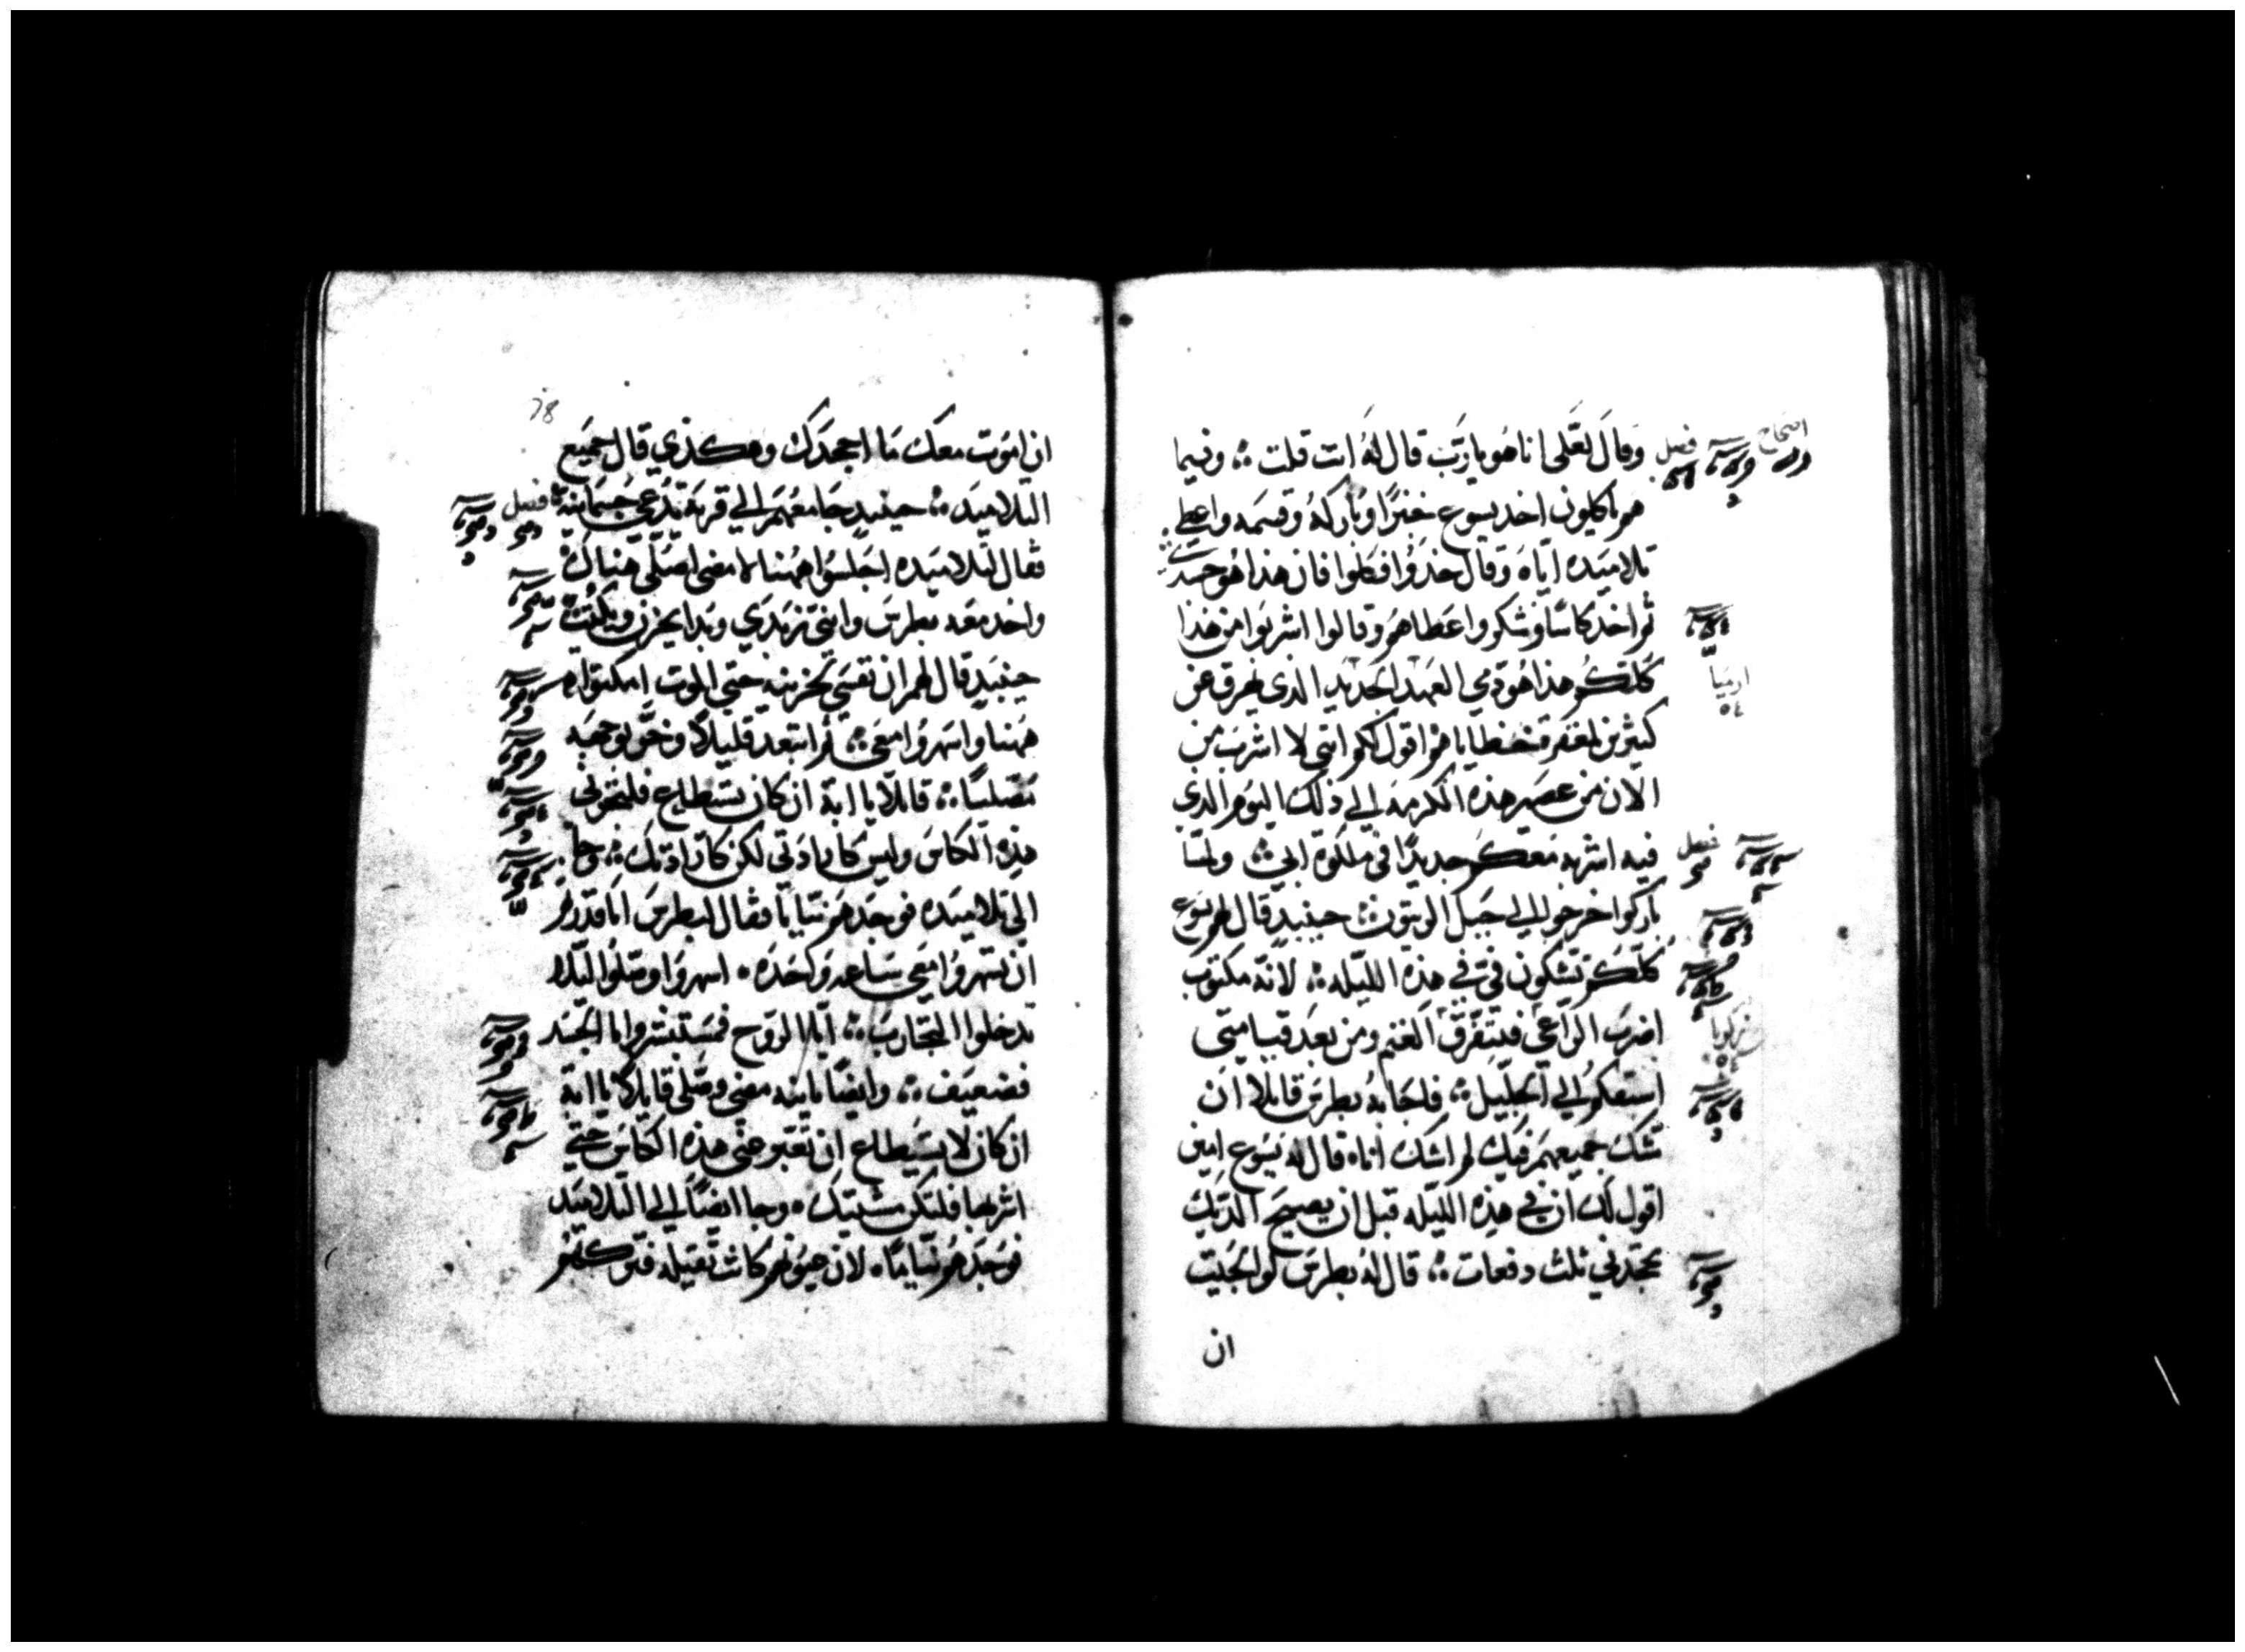 وقال لعلي انا هو يا رب قال له انت قلت ؞ وفيما
هم ياكلون اخد يسوع خبزًا وباركه وقسمه واعطي
تلاميده اياه وقال خذوا فكلوا فان هذا هو جسدي
ثم اخد كاسًا وشكر واعطاهم وقالوا اشربوا من هذا
كلكم هذا هو دمي العهد الجديد الدي يهرق عن
كثيرين لمغفرة خطاياهم اقول لكم انني لا اشرب من
الان من عصير هذه الكرمه الي ذلك اليوم الذي
فيه اشربه معكم جديدًا في ملكوة ابي ؞ ولما
باركوا خرجوا الي جبل الزيتون ؞ حينيد قال لهم يسوع
كلكم تشكون فيّ في هذه الليله ؞ لانه مكتوب
اضرب الراعي فيتفرق الغنم ومن بعد قيامتي
اسبقكم الي الجليل ؞ فاجابه بطرس قايلا ان
شك جميعهم فيك لم اشك انا ه قال له يسوع امين
اقول لك ان في هذه الليله قبل ان يصيح الديك
تجحدني ثلث دفعات ؞ قال له بطرس لو الجيت
ان
اصحاح
فصل
ارميا
فصل
زكريا
78
ان اموت معك ما اجحدك وهكذي قال جميع
التلاميد ؞ حينيد جا معهم الي قرية تدعي جسمانية
فقال لتلاميده اجلسوا ههنا لامضي اصلي هناك
واخد معه بطرس وابني زبدي وبدا يحزن ويكتئب
حينيد قال لهم ان نفسي لحزينه حتي الموت امكتوا
ههنا واسهروا معي ؞ ثم ابتعد قليلاً وخر بوجهه
مصليًا ؞ قايلا يا ابة ان كان يستطاع فلتعبر عني
هذه الكاس وليس كارادتي لكن كارادتك ؞ وجا
الي تلاميده فوجدهم نيايا فقال لبطرس اما قدرتم
ان تسهروا معي ساعه واحده ؞ اسهروا وصلوا ليلا
تدخلوا التجارب ؞ اما الروح فمستبشر واما الجسد
فضعيف ؞ وايضًا تانيه مضي وصلي قايلاً يا ابة
ان كان لا يستطاع ان تعبر عني هذه الكاس حتي
اشربها فلتكن مشيتك ه وجا ايضًا الي التلاميد
فوجدهم نيامًا ه لان عيونهم كانت ثقيله فتركهم
فصل